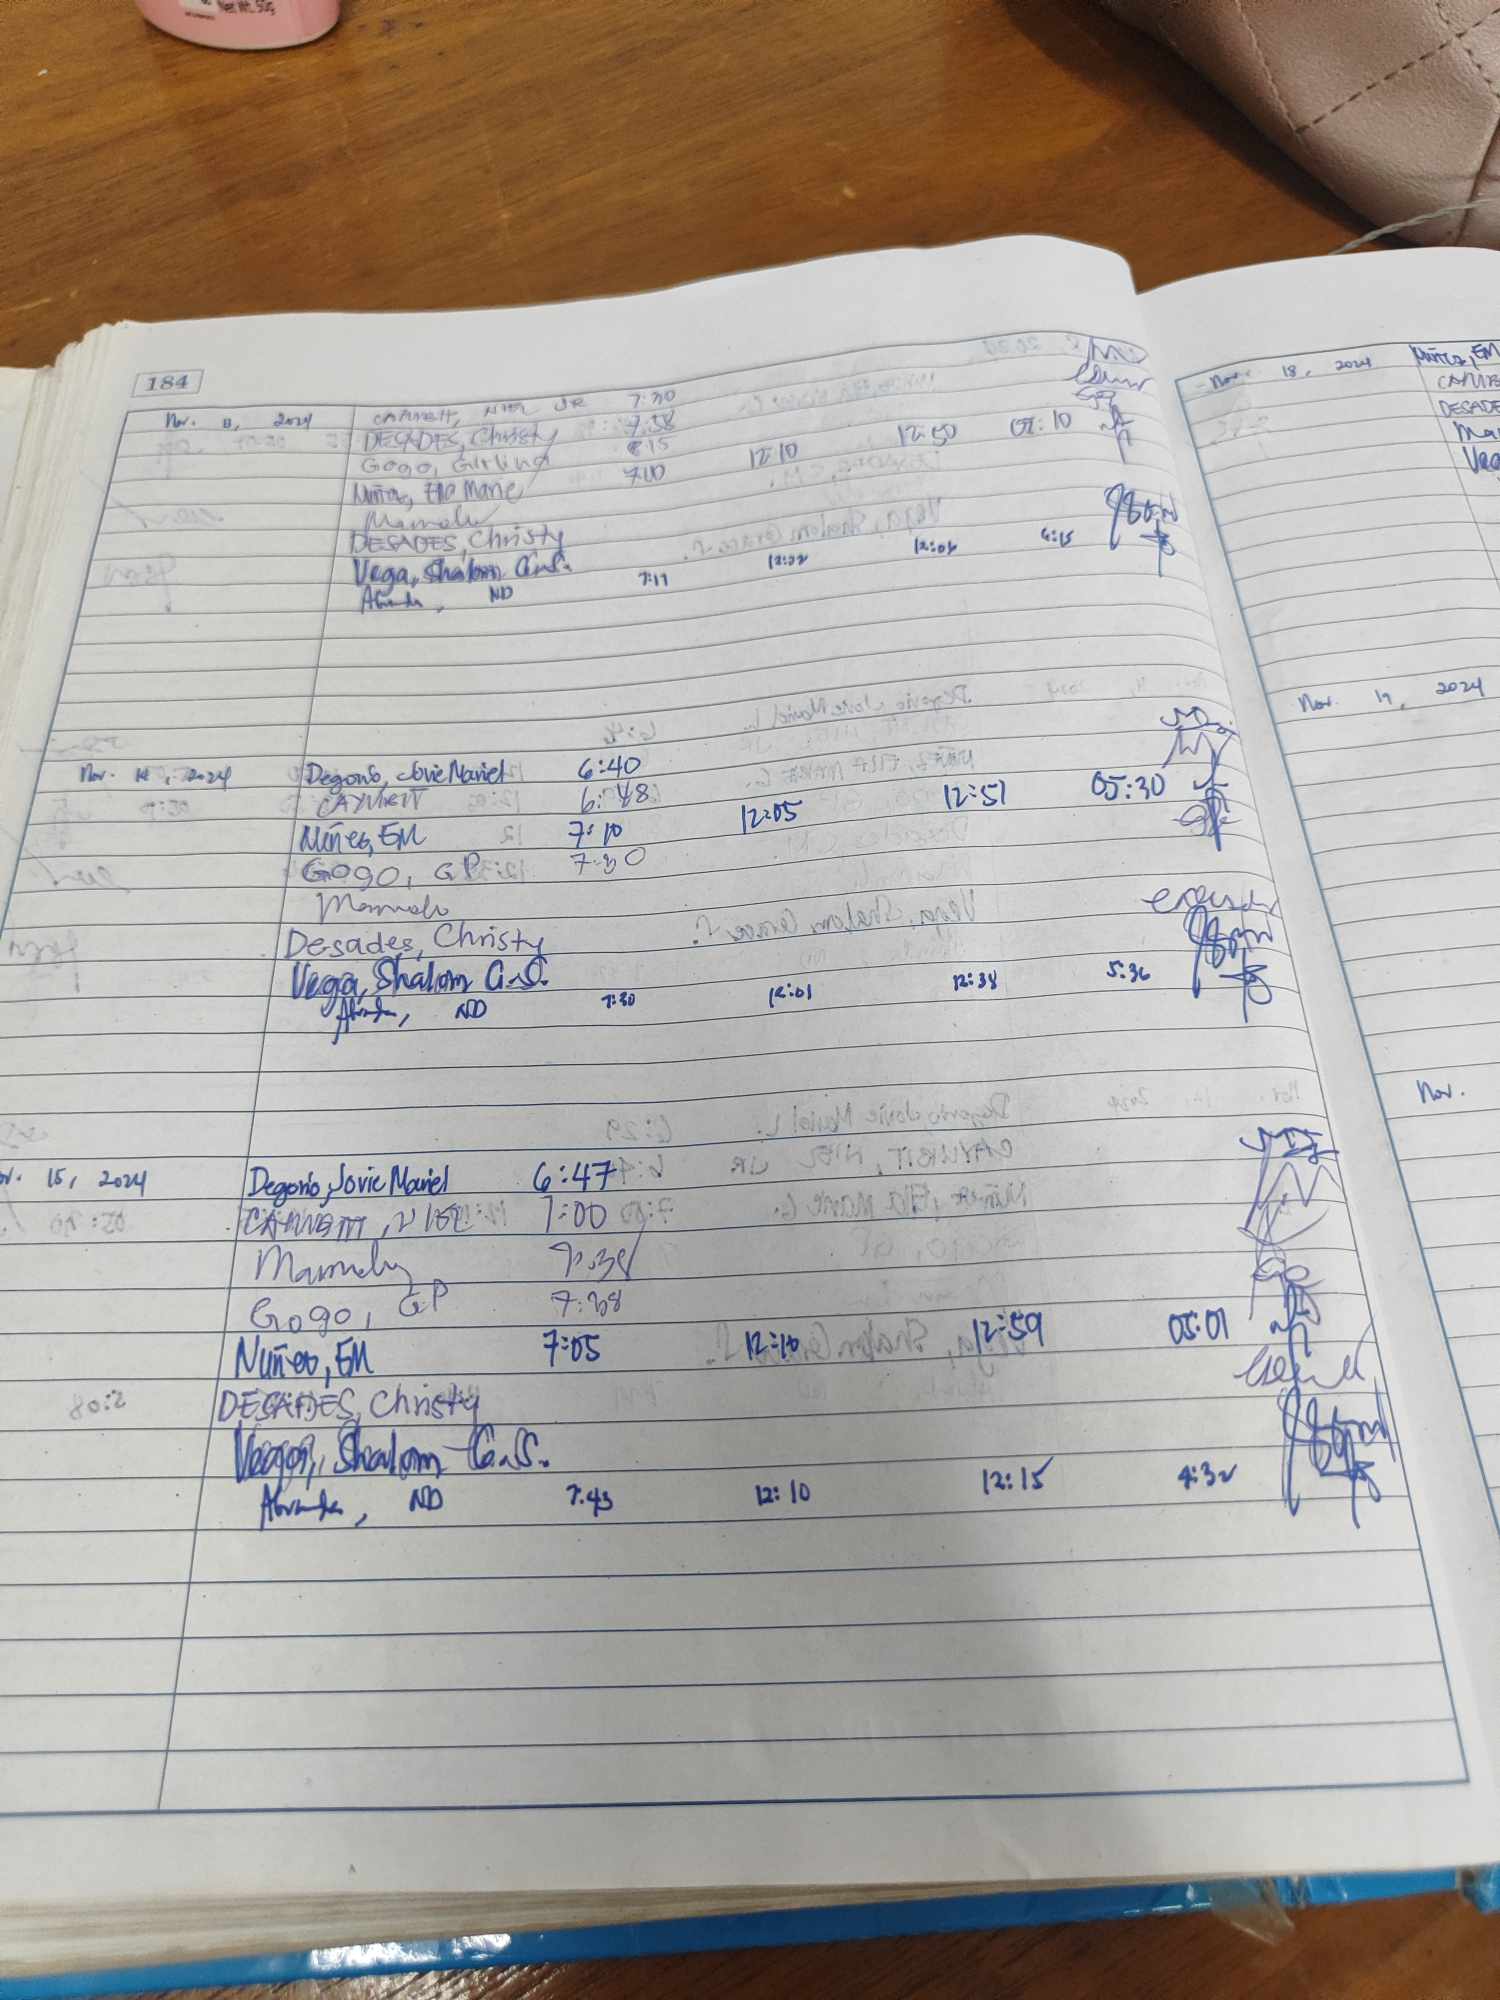 Net Wt. 50g
184
Nov. 13, 2024 CAYUBIT, NIEL JR 7:30
DESADES, Christy 7:38
Gogo, Girlina 815
Nuñez, Ella Marie 7:00 12:10 12:50 05:10
Mamalu
DESADES, Christy
Vega, Shalom G.S.
ND 7:17 12:02 12:06 6:15
Nov. 14, 2024 Degorio, Jovie Mariel 6:40
CAYUBIT 6:48
Nuñez, EM 7:10 12:05 12:51 05:30
Gogo, GP 7:30
Mamalu
Desades, Christy
Vega, Shalom G.S.
ND 7:30 12:01 12:38 5:36
Nov. 15, 2024 Degorio, Jovie Mariel 6:47
CAYUBIT, NIEL 7:00
Mamalu 7:38
Gogo, GP 7:38
Nuñez, EM 7:05 12:10 12:59 05:01
DESADES, Christy
Vega, Shalom G.S.
ND 7:43 12:10 12:15 4:32
Nov. 18, 2024 Nuñez, EM
CAYUB
DESADE
Ma
Veg
Nov. 19, 2024
Nov.